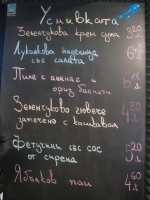 Усмивката
Зеленчукова крем супа 3.20
Луканкова наденица 6.40
със салата
Пиле с ананас и 6
ориз басмати
Зеленчуково гювече 4.20
запечено с кашкавал
Фетучини със сос
от сирена
Ябълков пай 4.60